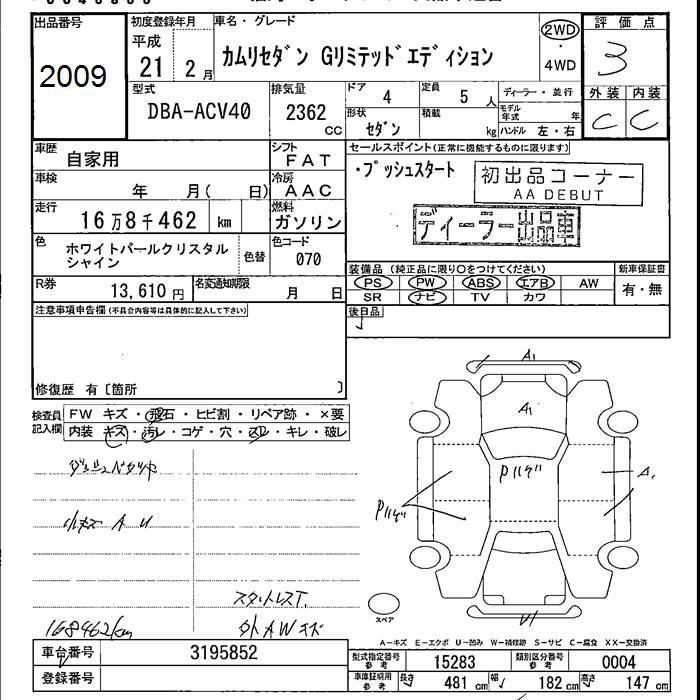 出品番号
2009
初度登録年月
平成
21年 2月
車名・グレード
カムリセダン Gリミテッドエディション
2WD
・
4WD
評価点
3
外装 内装
C C
型式
DBA-ACV40
排気量
2362
CC
ドア 4
定員 5人
形状
セダン
積載 kg
ディーラー・並行
モデル年式 年
ハンドル 左・右
車歴 自家用
シフト FAT
車検 年 月( 日)
冷房 AAC
走行 16万8千462 km
燃料 ガソリン
色 ホワイトパールクリスタル
シャイン
色替
色コード
070
R券 13,610円
名変通知期限 月 日
セールスポイント(正常に機能するものに限ります)
・プッシュスタート
初出品コーナー
AA DEBUT
ディーラー出品車
装備品 (純正品に限り○をつけてください)
PS PW ABS エアB AW
SR ナビ TV カワ
新車保証書
有・無
後日品
注意事項申告欄(不具合内容等は具体的に記入して下さい)
修復歴 有〔箇所 〕
検査員
記入欄
FW キズ・飛石・ヒビ割・リペア跡・×要
内装 キズ・汚レ・コゲ・穴・スレ・キレ・破レ
小キズ A U
スタットレスT.
外AWキズ
168462km
A1
A1
Pハゲ
A1
Pハゲ
U1
スペア
A-キズ E-エクボ U-凹み W-補修跡 S-サビ C-腐食 XX-交換済
車台番号 3195852
登録番号
型式指定番号
参考
15283
類別区分番号
参考
0004
車庫証明用
参考
長さ 481cm 幅 182cm 高さ 147cm